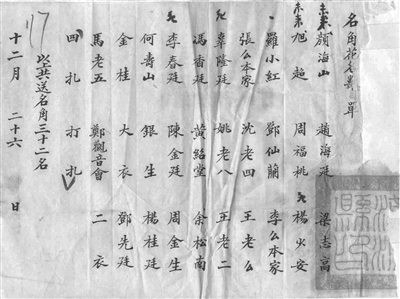 名角花名單
未來 顏海山 趙海廷 梁志高
未來 旭超 周福桃 楊火安
羅小紅 鄧仙蘭 李么本家
張么本家 沈老四 王老么
辜隆廷 姚老八 王老二
馮香廷 黃紹堂 余松南
李春廷 陳金廷 周金生
何壽山 銀生 楊桂廷
金桂 大衣 鄧先廷
馬老五 鄭觀音會 二衣
四扎 打扎
以上共送名角三十二名
十二月 二十六 日